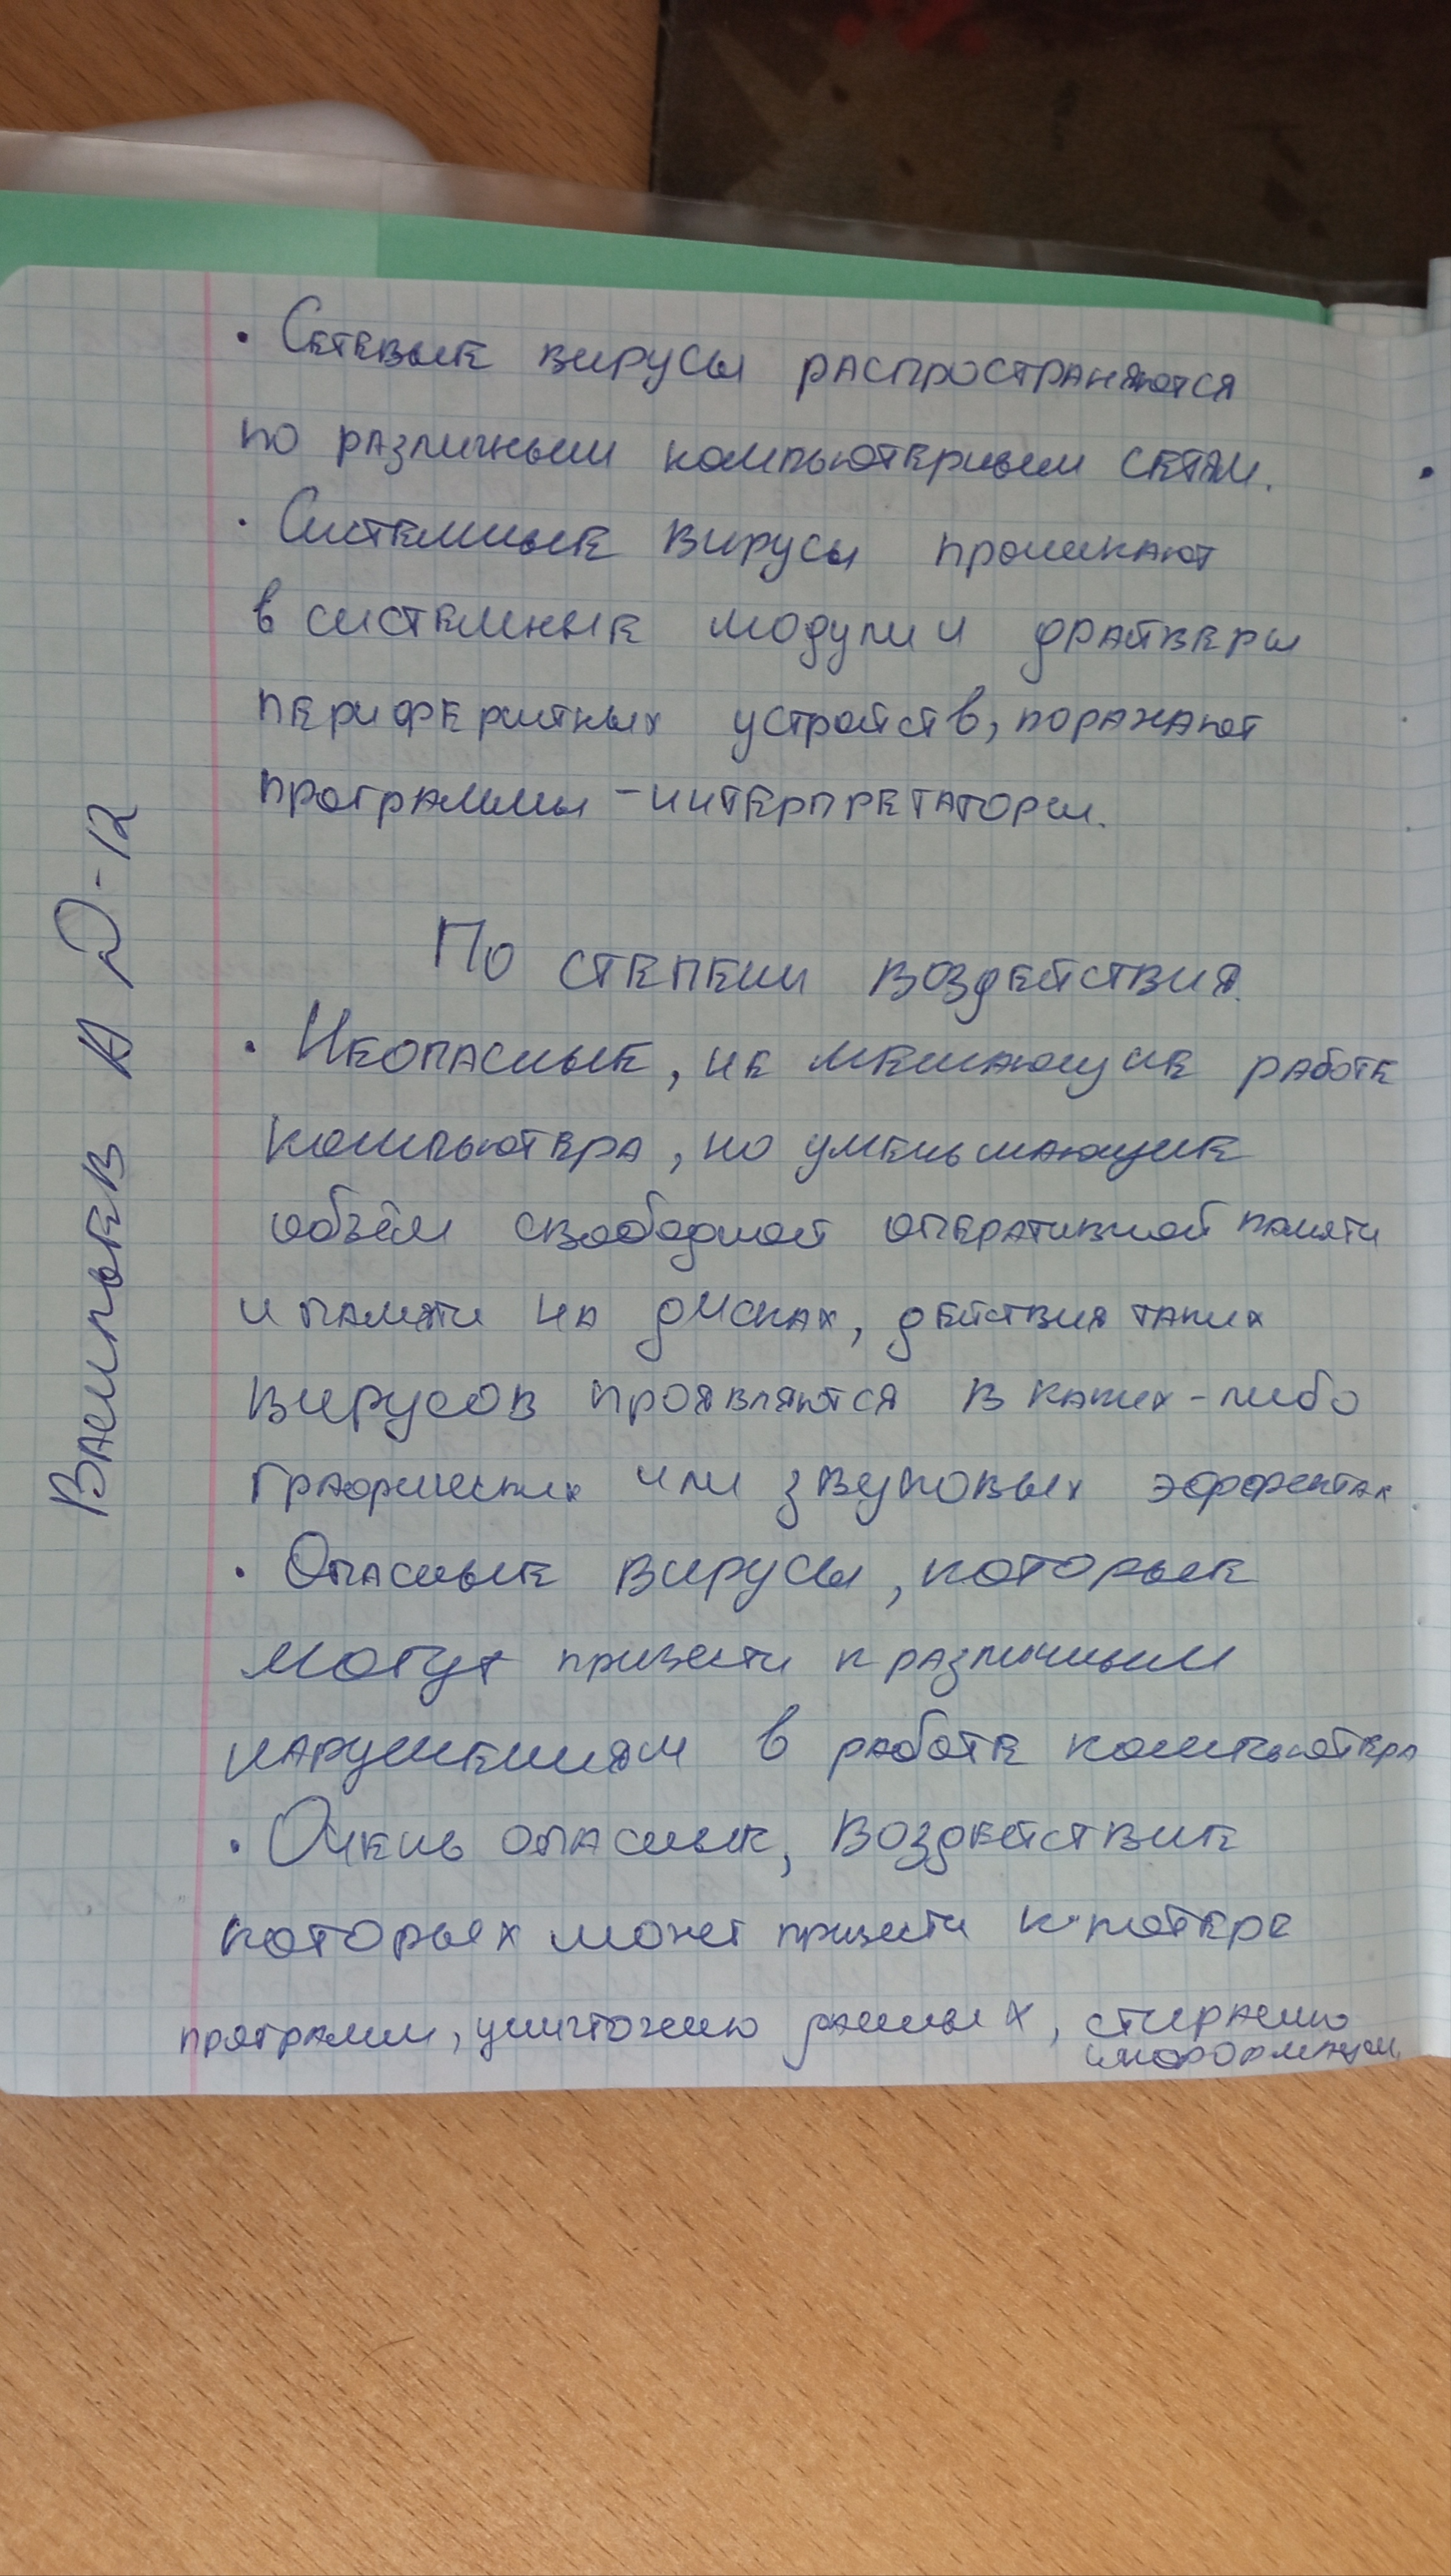 • Сетевые вирусы распространяются
по различным компьютерным сетям.
• Системные вирусы проникают
в системные модули и драйверы
периферитных устройств, поражают
программы - интерпретаторы.
По степени воздействия.
• Неопасные, не мешающие работе
компьютера, но уменьшающие
объём свободной оперативной памяти
и памяти на дисках, действия таких
вирусов проявляются в каких-либо
графических или звуковых эффектах.
• Опасные вирусы, которые
могут привести к различным
нарушениям в работе компьютера
• Очень опасные, воздействие
которых может привести к потере
программ, уничтожению данных, стиранию
информации.
Васильев А Д-12